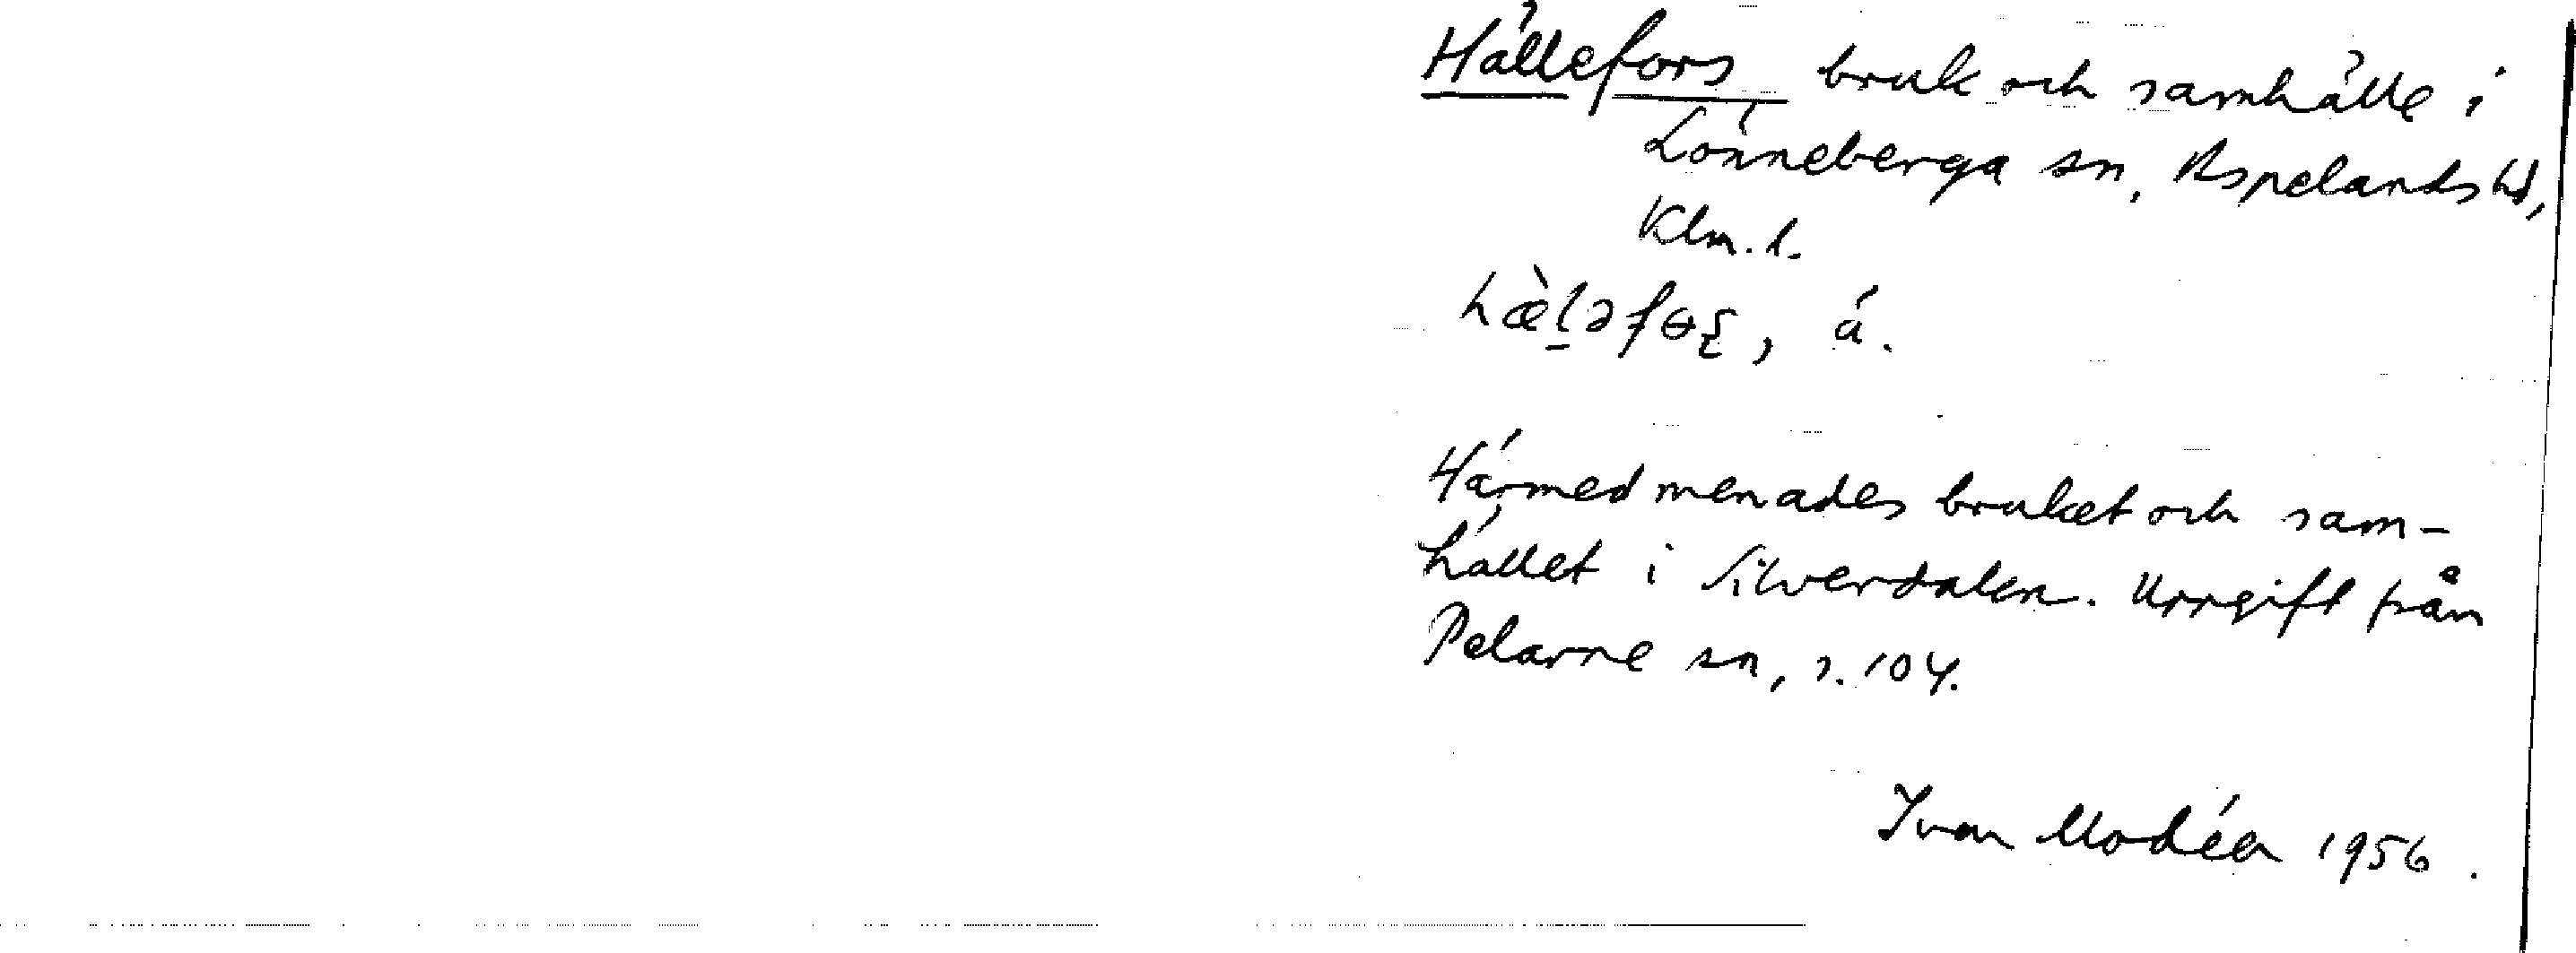 Hällefors bruk och samhälle i
Lönneberga sn, Aspelands hd,
Klm. l.
hæ̀l̠əfɵʂ, á.
Härmed menades bruket och sam-
hället i Silverdalen. Uppgift från
Pelarne sn, s. 104.
Ivar Modéer 1956.